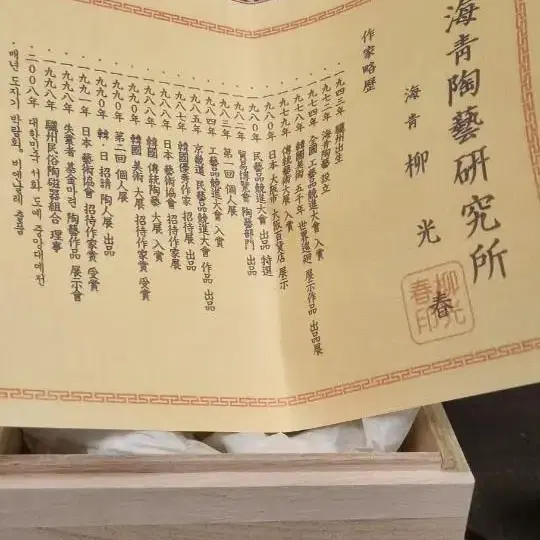 海青陶藝研究所
海青 柳光春
柳光春印
作家略歷
· 一九四三年 驪州出生
· 一九七二年 海青陶藝 設立
· 一九七四年 全國 工藝品競進大會 入賞
· 一九七九年 韓國美術 五千年 世界巡廻 展示作品 出品展
· 一九七九年 傳統藝術大展 入賞
· 一九八〇年 日本 大阪市 大阪百貨店 展示
· 一九八〇年 民藝品競進大會 出品 特選
· 一九八二年 貿易博覽會 陶藝部門 出品
· 一九八三年 第一回 個人展
· 一九八四年 工藝品競進大會 入賞
· 一九八五年 京畿道 民藝品競進大會 作品 出品
· 一九八七年 韓國優秀作家 招待展 出品
· 一九八八年 日本 藝術協會 招待作家展
· 一九八八年 韓國 傳統陶藝 大展 入賞
· 一九九〇年 韓國 美術 大展 招待作家賞 受賞
· 一九九〇年 第二回 個人展
· 一九九〇年 韓·日 招請 陶人展 出品
· 一九九一年 日本 藝術協會 招待作家賞 受賞
· 一九九八年 失業者 基金마련 陶藝作品 展示會
· 一九九八年 驪州民俗陶磁器組合 理事
· 二〇〇八年 대한민국 서화 도예 중앙대예전
· 매년 도자기 박람회, 비엔날레 출품